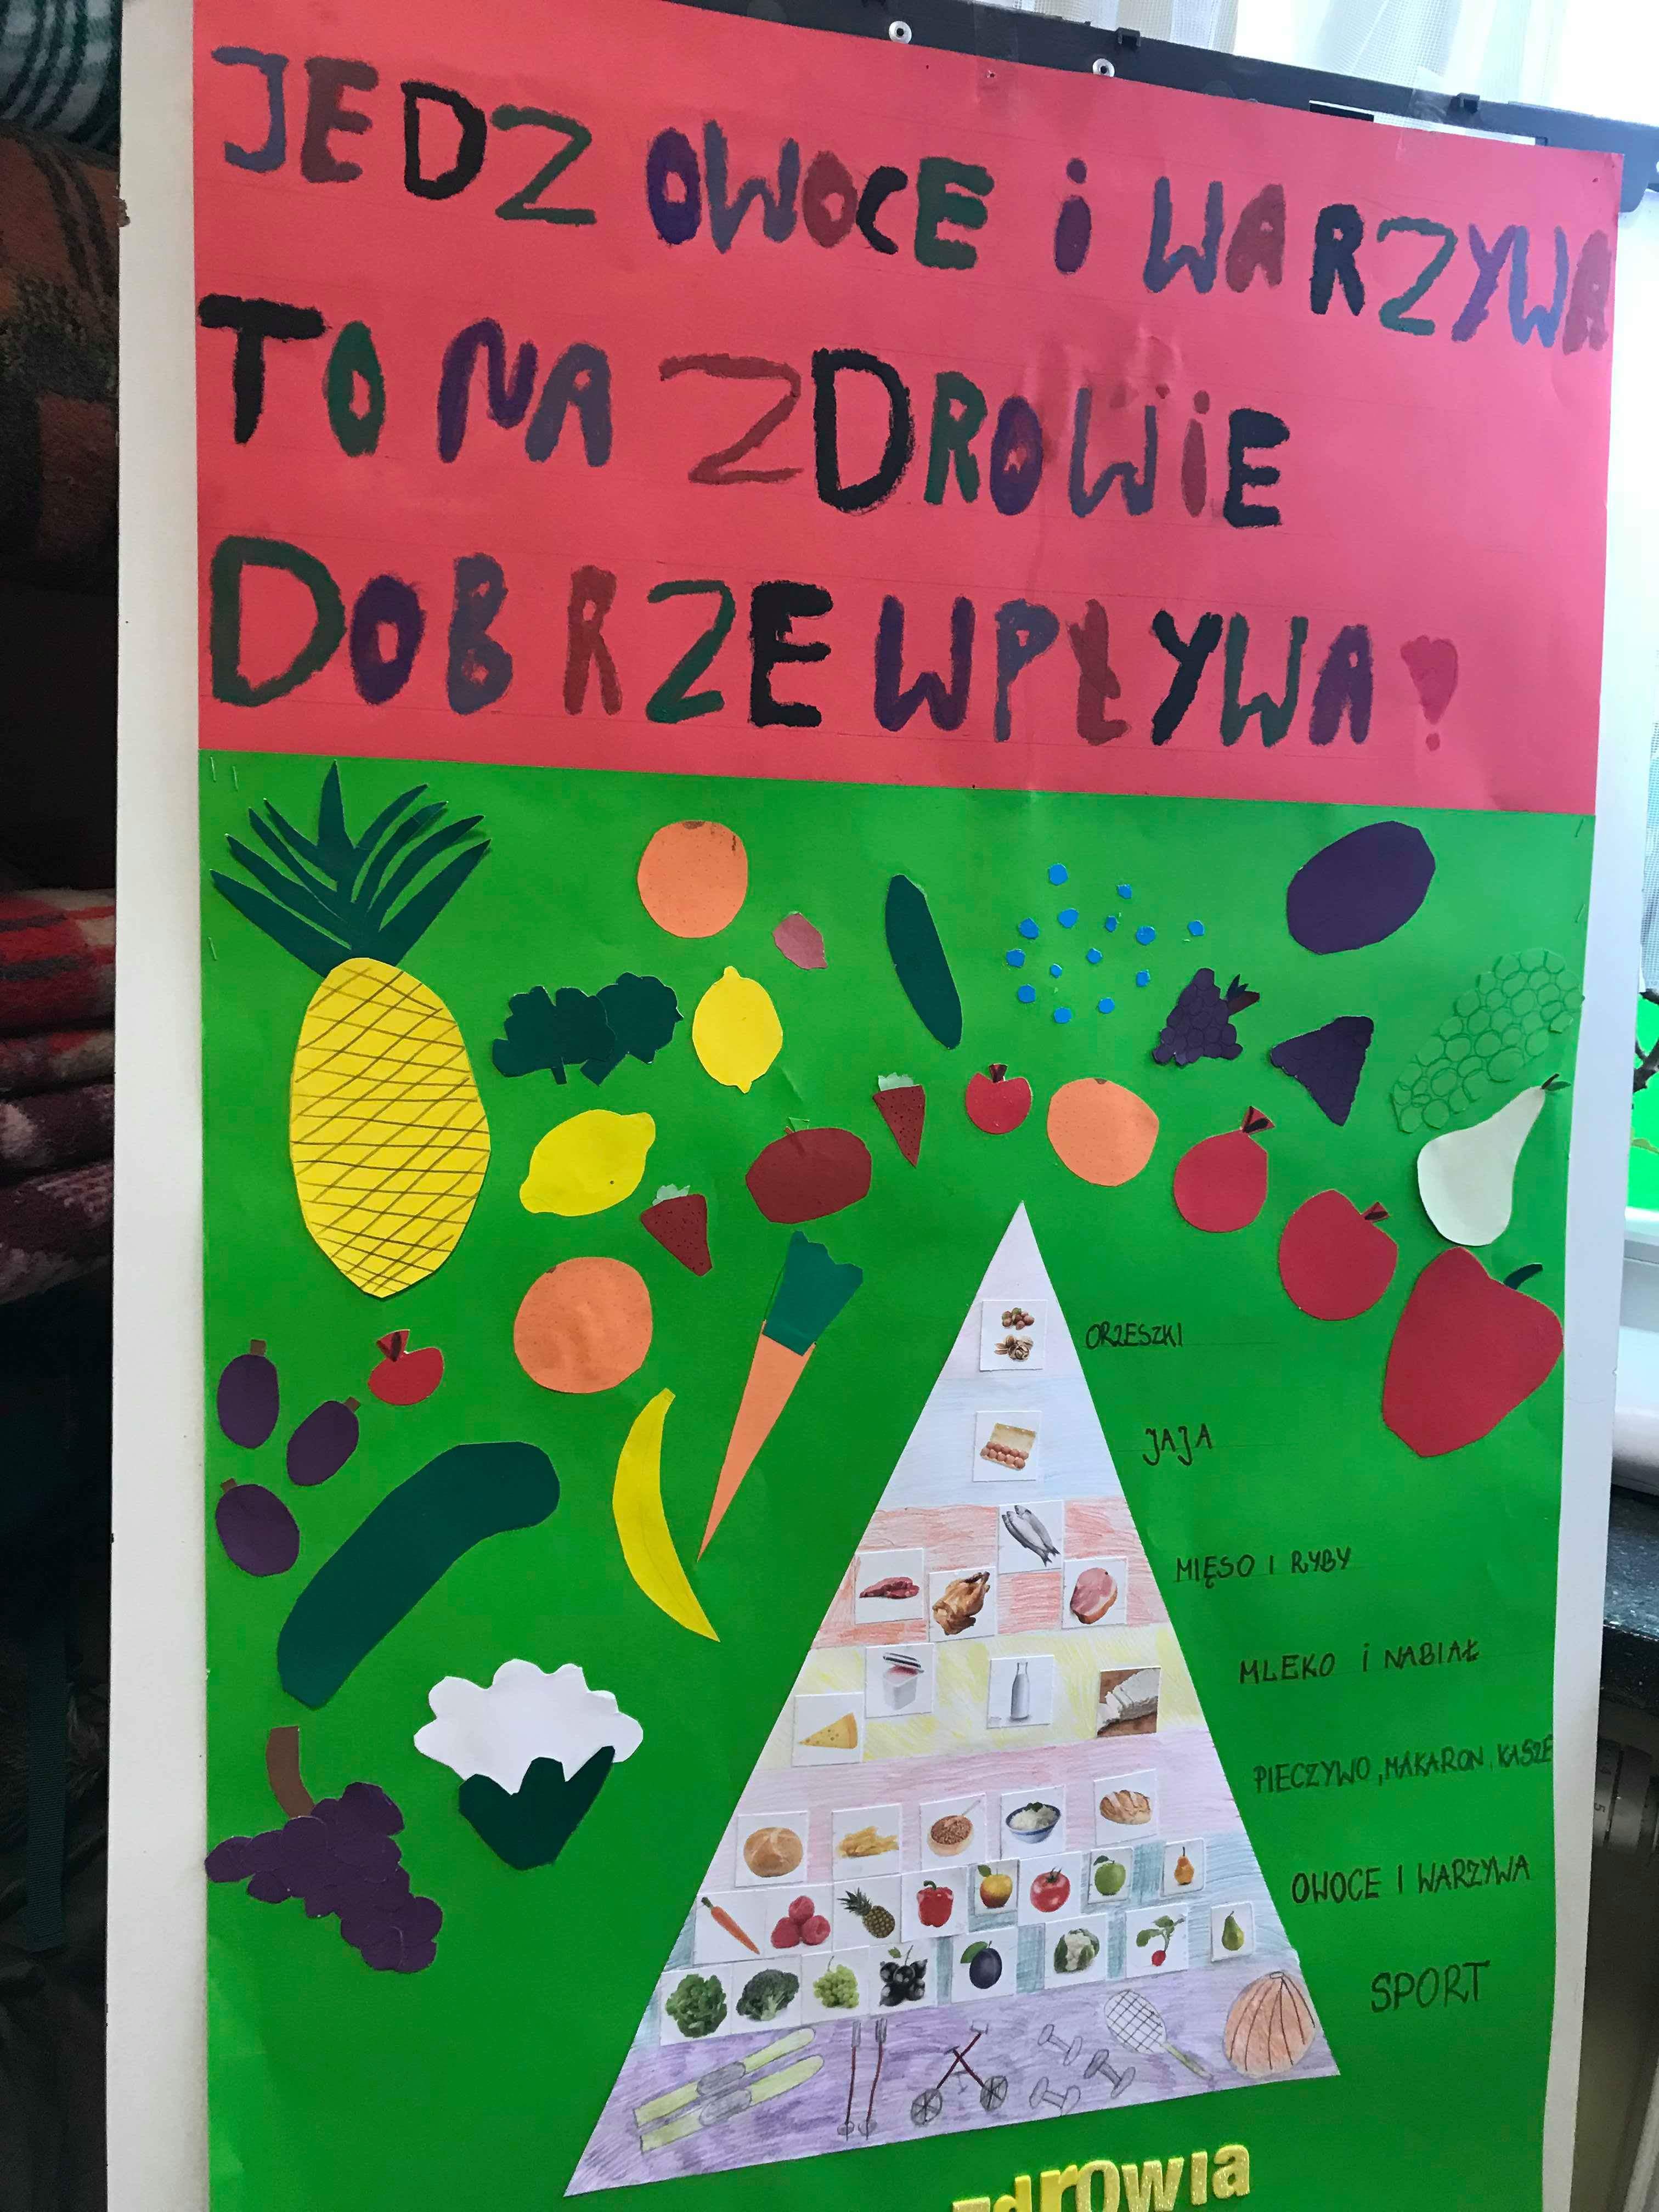 JEDZ OWOCE i WARZYWA
TO NA ZDROWiE
DOBRZE WPŁYWA!
ORZESZKI
JAJA
MIĘSO I RYBY
MLEKO i NABIAŁ
PIECZYWO, MAKARON, KASZE
OWOCE I WARZYWA
SPORT
zdrowia